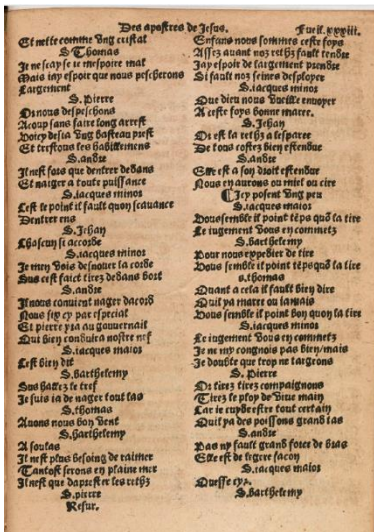 Des apostres de Jesus. Fueil.xxxiii.
Et nette comme vng cristal
S.Thomas
Je ne scay se ie mespoire mal
Mais iay espoir que nous pescherons
Largement
S.Pierre
Or nous despeschons
Acoup sans faire long arrest
Voicy desia vng basteau prest
Et trestous les habillemens
S.andre
Il nest fors que dentrer dedans
Et nager a toute puissance
S.iacques minor
Cest le point il fault quon scauance
Dentrer ens
S.Jehan
Chascun si accorde
S.iacques minor
Je men vois desnouer la corde
Sus cest faict tirez dedans bort
S.andre
Il nous conuient nager dacord
Nous six cy par especial
Et pierre yra au gouuernail
Qui bien conduira nostre nef
S.iacques maior
Cest bien dit
S.barthelemy
Sus hallez le tref
Je suis ia de nager tout las
S.thomas
Auons nous bon vent
S.barthelemy
A soulas
Il nest plus besoing de raimer
Tantost serons en plaine mer
Il nest que daprester les rethz
S.pierre
Resur.
Enfans nous sommes ceste foys
Assez auant noz rethz fault tendre
Jay espoir de largement prendre
Si fault noz seines desployer
S.iacques minor
Que dieu nous vueille enuoyer
A ceste foys bonne maree.
S.Jehan
Or est la rethz a lesparee
De tous costez bien estendue
S.andre
Elle est a son droit estendue
Nous en aurons ou miel ou cire
¶Icy posent vng peu
S.iacques maior
Vous semble il point tẽps quõ la tire
Le iugement vous en commetz
S.barthelemy
Pour nous expedier de tire
Vous semble il point tẽps quõ la tire
s.thomas
Quant a cela il fault bien dire
Quil ya maree ou iamais
Vous semble il point bon quon la tire
S.iacques minor
Le iugement vous en commetz
Je ne my congnois pas bien/mais
Je doubte que trop ne targeons
S. Pierre
Or tirez tirez compaignons
Tirez le ploy de viue main
Car ie cuyde estre tout certain
Quil ya des poissons grand tas
S.andre
Pas ny fault grand force de bras
Elle est de legere facon
S.iacques maior
Quesse cy.
S.barthelemy